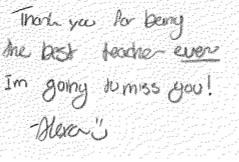 Thank you for being
the best teacher ever
I'm going to miss you!
-Alexa